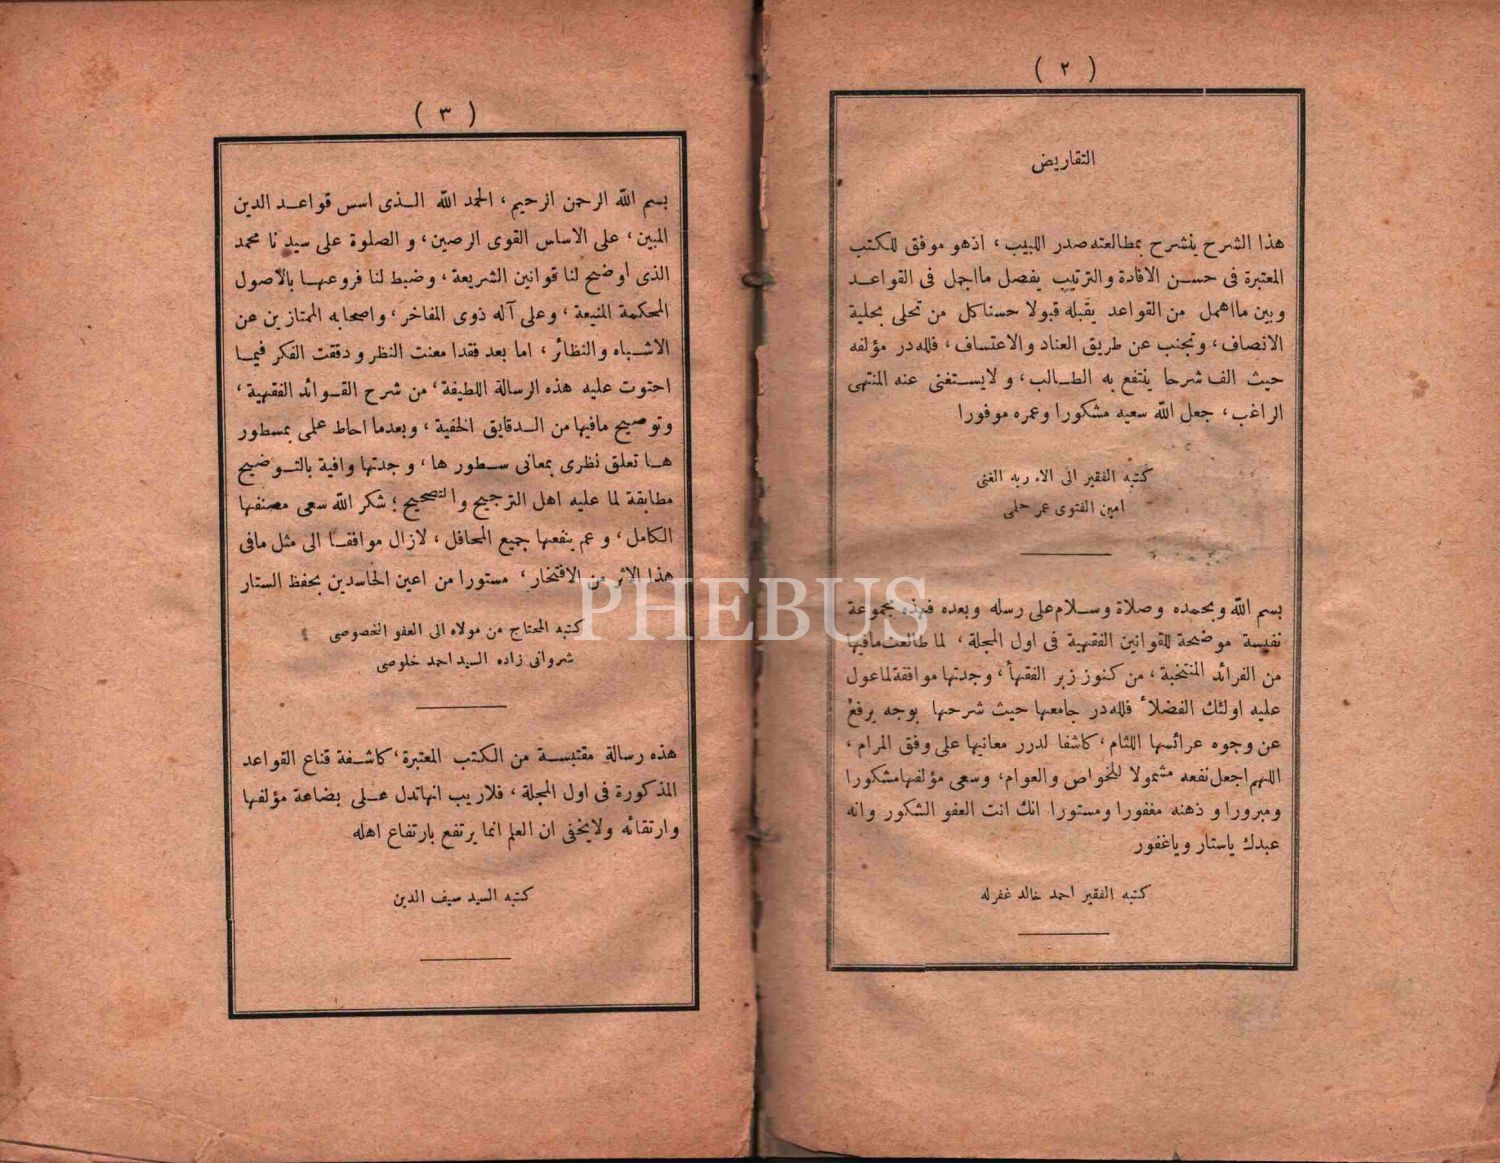 ( ٢ )
التقاريض
هذا الشرح ينشرح بمطالعته صدر اللبيب، اذهو موفق للكتب
المعتبرة فى حسن الافادة والترتيب يفصل مااجمل فى القواعد
وبين مااهمل من القواعد يقبله قبولا حسنا كل من تحلى بحلية
الانصاف، وتجنب عن طريق العناد والاعتساف، فلله در مؤلفه
حيث الف شرحا ينتفع به الطالب، و لايستغنى عنه المنتهى
الراغب، جعل الله سعيه مشكورا وعمره موفورا
كتبه الفقير الى الاء ربه الغنى
امين الفتوى عمر حلمى
بسم الله وبحمده وصلاة وسلام على رسله وبعده فهذه مجموعة
نفيسة موضحة للقوانين الفقهية فى اول المجلة، لما طالعت مافيها
من الفرائد المنتخبة، من كنوز زبر الفقهأ، وجدتها موافقة لماعول
عليه اولئك الفضلاء فلله در جامعها حيث شرحها بوجه يرفع
عن وجوه عرائسها اللثام، كاشفا لدرر معانيها على وفق المرام،
اللهم اجعل نفعه مشمولا للخواص والعوام، وسعى مؤلفها مشكورا
ومبرورا و ذهنه مغفورا ومستورا انك انت العفو الشكور وانه
عبدك ياستار وياغفور
كتبه الفقير احمد خالد غفرله
( ٣ )
بسم الله الرحمن الرحيم، الحمد الله الذى اسس قواعد الدين
المبين، على الاساس القوى الرصين، و الصلوة على سيد نا محمد
الذى اوضح لنا قوانين الشريعة، وضبط لنا فروعها بالاصول
المحكمة المنيعة، وعلى آله ذوى المفاخر، واصحابه الممتازين عن
الاشباه والنظائر، اما بعد فقدا معنت النظر و دققت الفكر فيما
احتوت عليه هذه الرسالة اللطيفة، من شرح القوائد الفقهية،
وتوضيح مافيها من الدقايق الخفية، وبعدما احاط علمى بمسطور
ها تعلق نظرى بمعانى سطور ها، و جدتها وافية بالتوضيح
مطابقة لما عليه اهل الترجيح والتصحيح؛ شكر الله سعى مصنفها
الكامل، و عم بنفعها جميع المحافل، لازال موافقا الى مثل مافى
هذا الاثر من الافتخار، مستورا من اعين الحاسدين بحفظ الستار
كتبه المحتاج من مولاه الى العفو الخصوصى
شروانى زاده السيد احمد خلوصى
هذه رسالة مقتبسة من الكتب المعتبرة، كاشفة قناع القواعد
المذكورة فى اول المجلة، فلاريب انهاتدل على بضاعة مؤلفها
وارتقائه ولايخفى ان العلم انما يرتفع بارتفاع اهله
كتبه السيد سيف الدين
PHEBUS